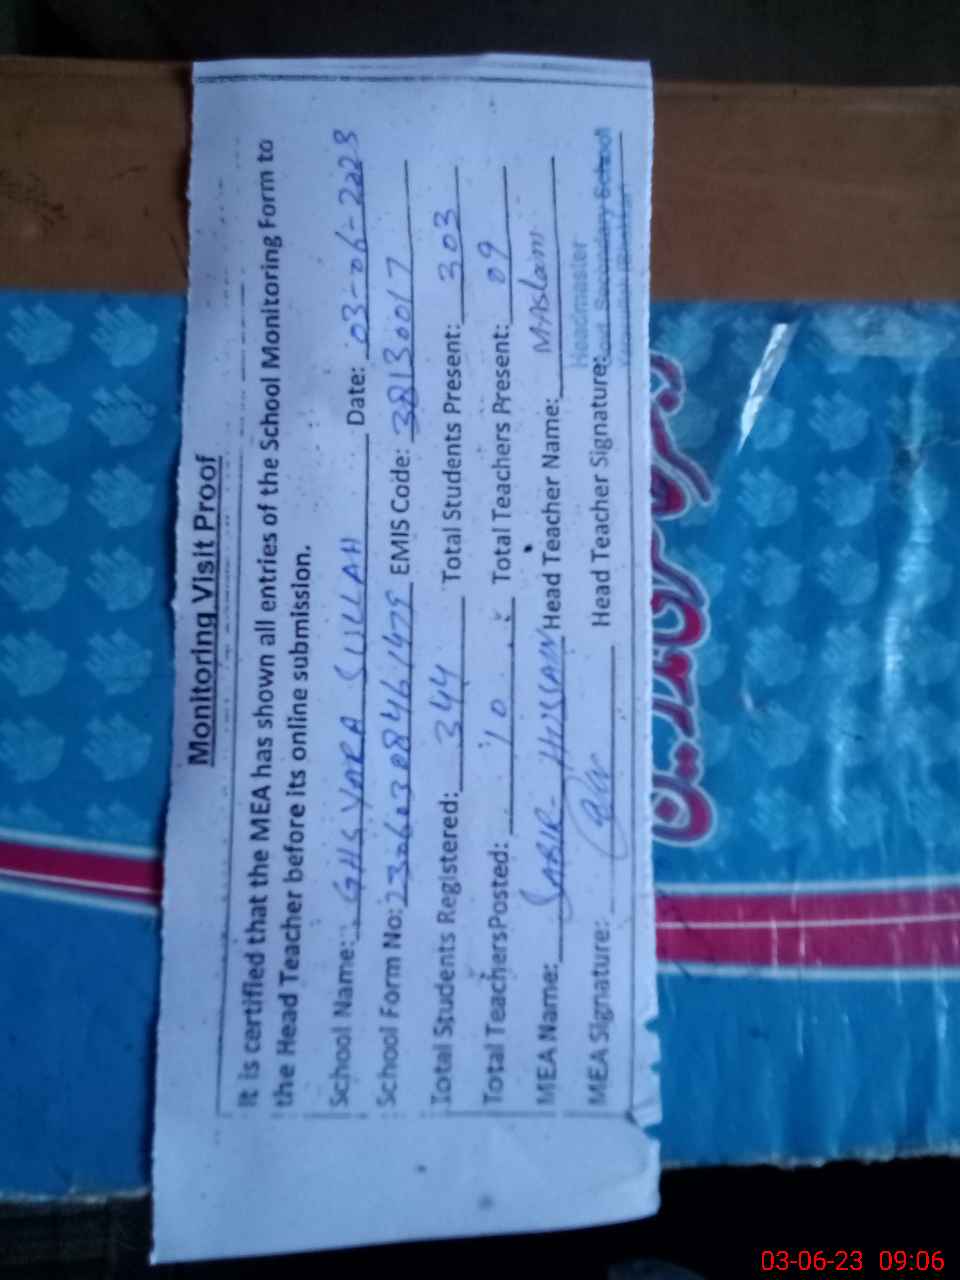 Monitoring Visit Proof
It is certified that the MEA has shown all entries of the School Monitoring Form to
the Head Teacher before its online submission.
School Name: GHS YARA Date: 03-06-2023
School Form No: EMIS Code: 38130017
Total Students Registered: 344 Total Students Present: 303
Total Teachers Posted: 10 Total Teachers Present: 09
MEA Name: SABIR HUSSAIN Head Teacher Name: M ASlam
MEA Signature: Head Teacher Signature:
Headmaster
Govt. Secondary School
03-06-23 09:06